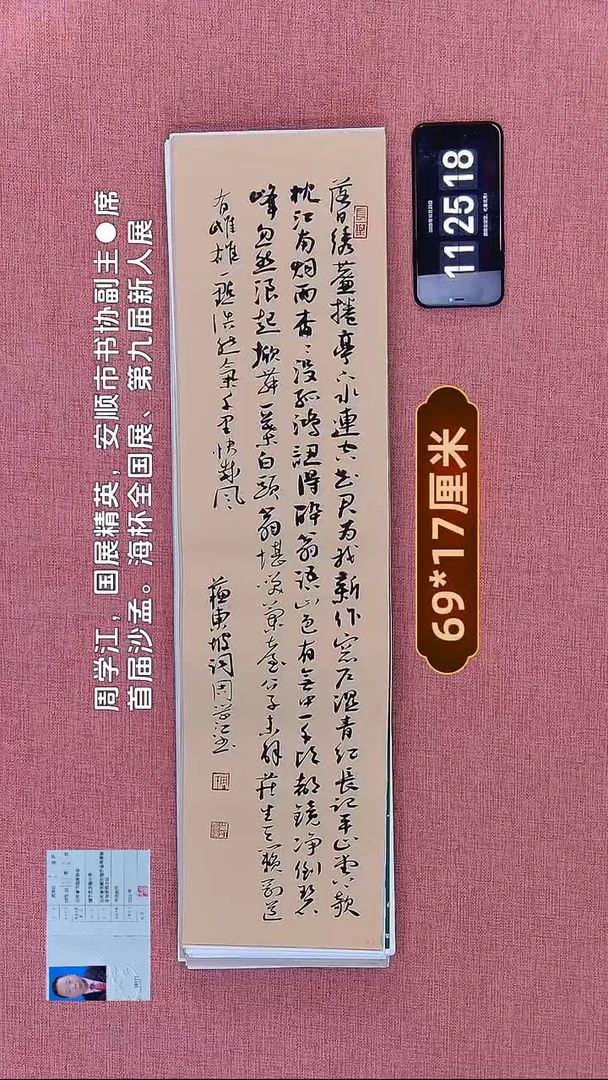 周学江，国展精英，安顺市书协副主●席
首届沙孟。海杯全国展、第九届新人展
落日绣簾捲亭下水連空知君为我新作窓户湿青红長记平山堂上欹
枕江南烟雨杳杳没孤鸿認得醉翁语山色有無中一千顷都鏡净倒碧
峰忽然浪起掀舞一葉白頭翁堪笑蘭台公子未解莊生天籁刚道
有雌雄一點浩然氣千里快哉风
蘇東坡词周学江书
11 25 18
69*17厘米